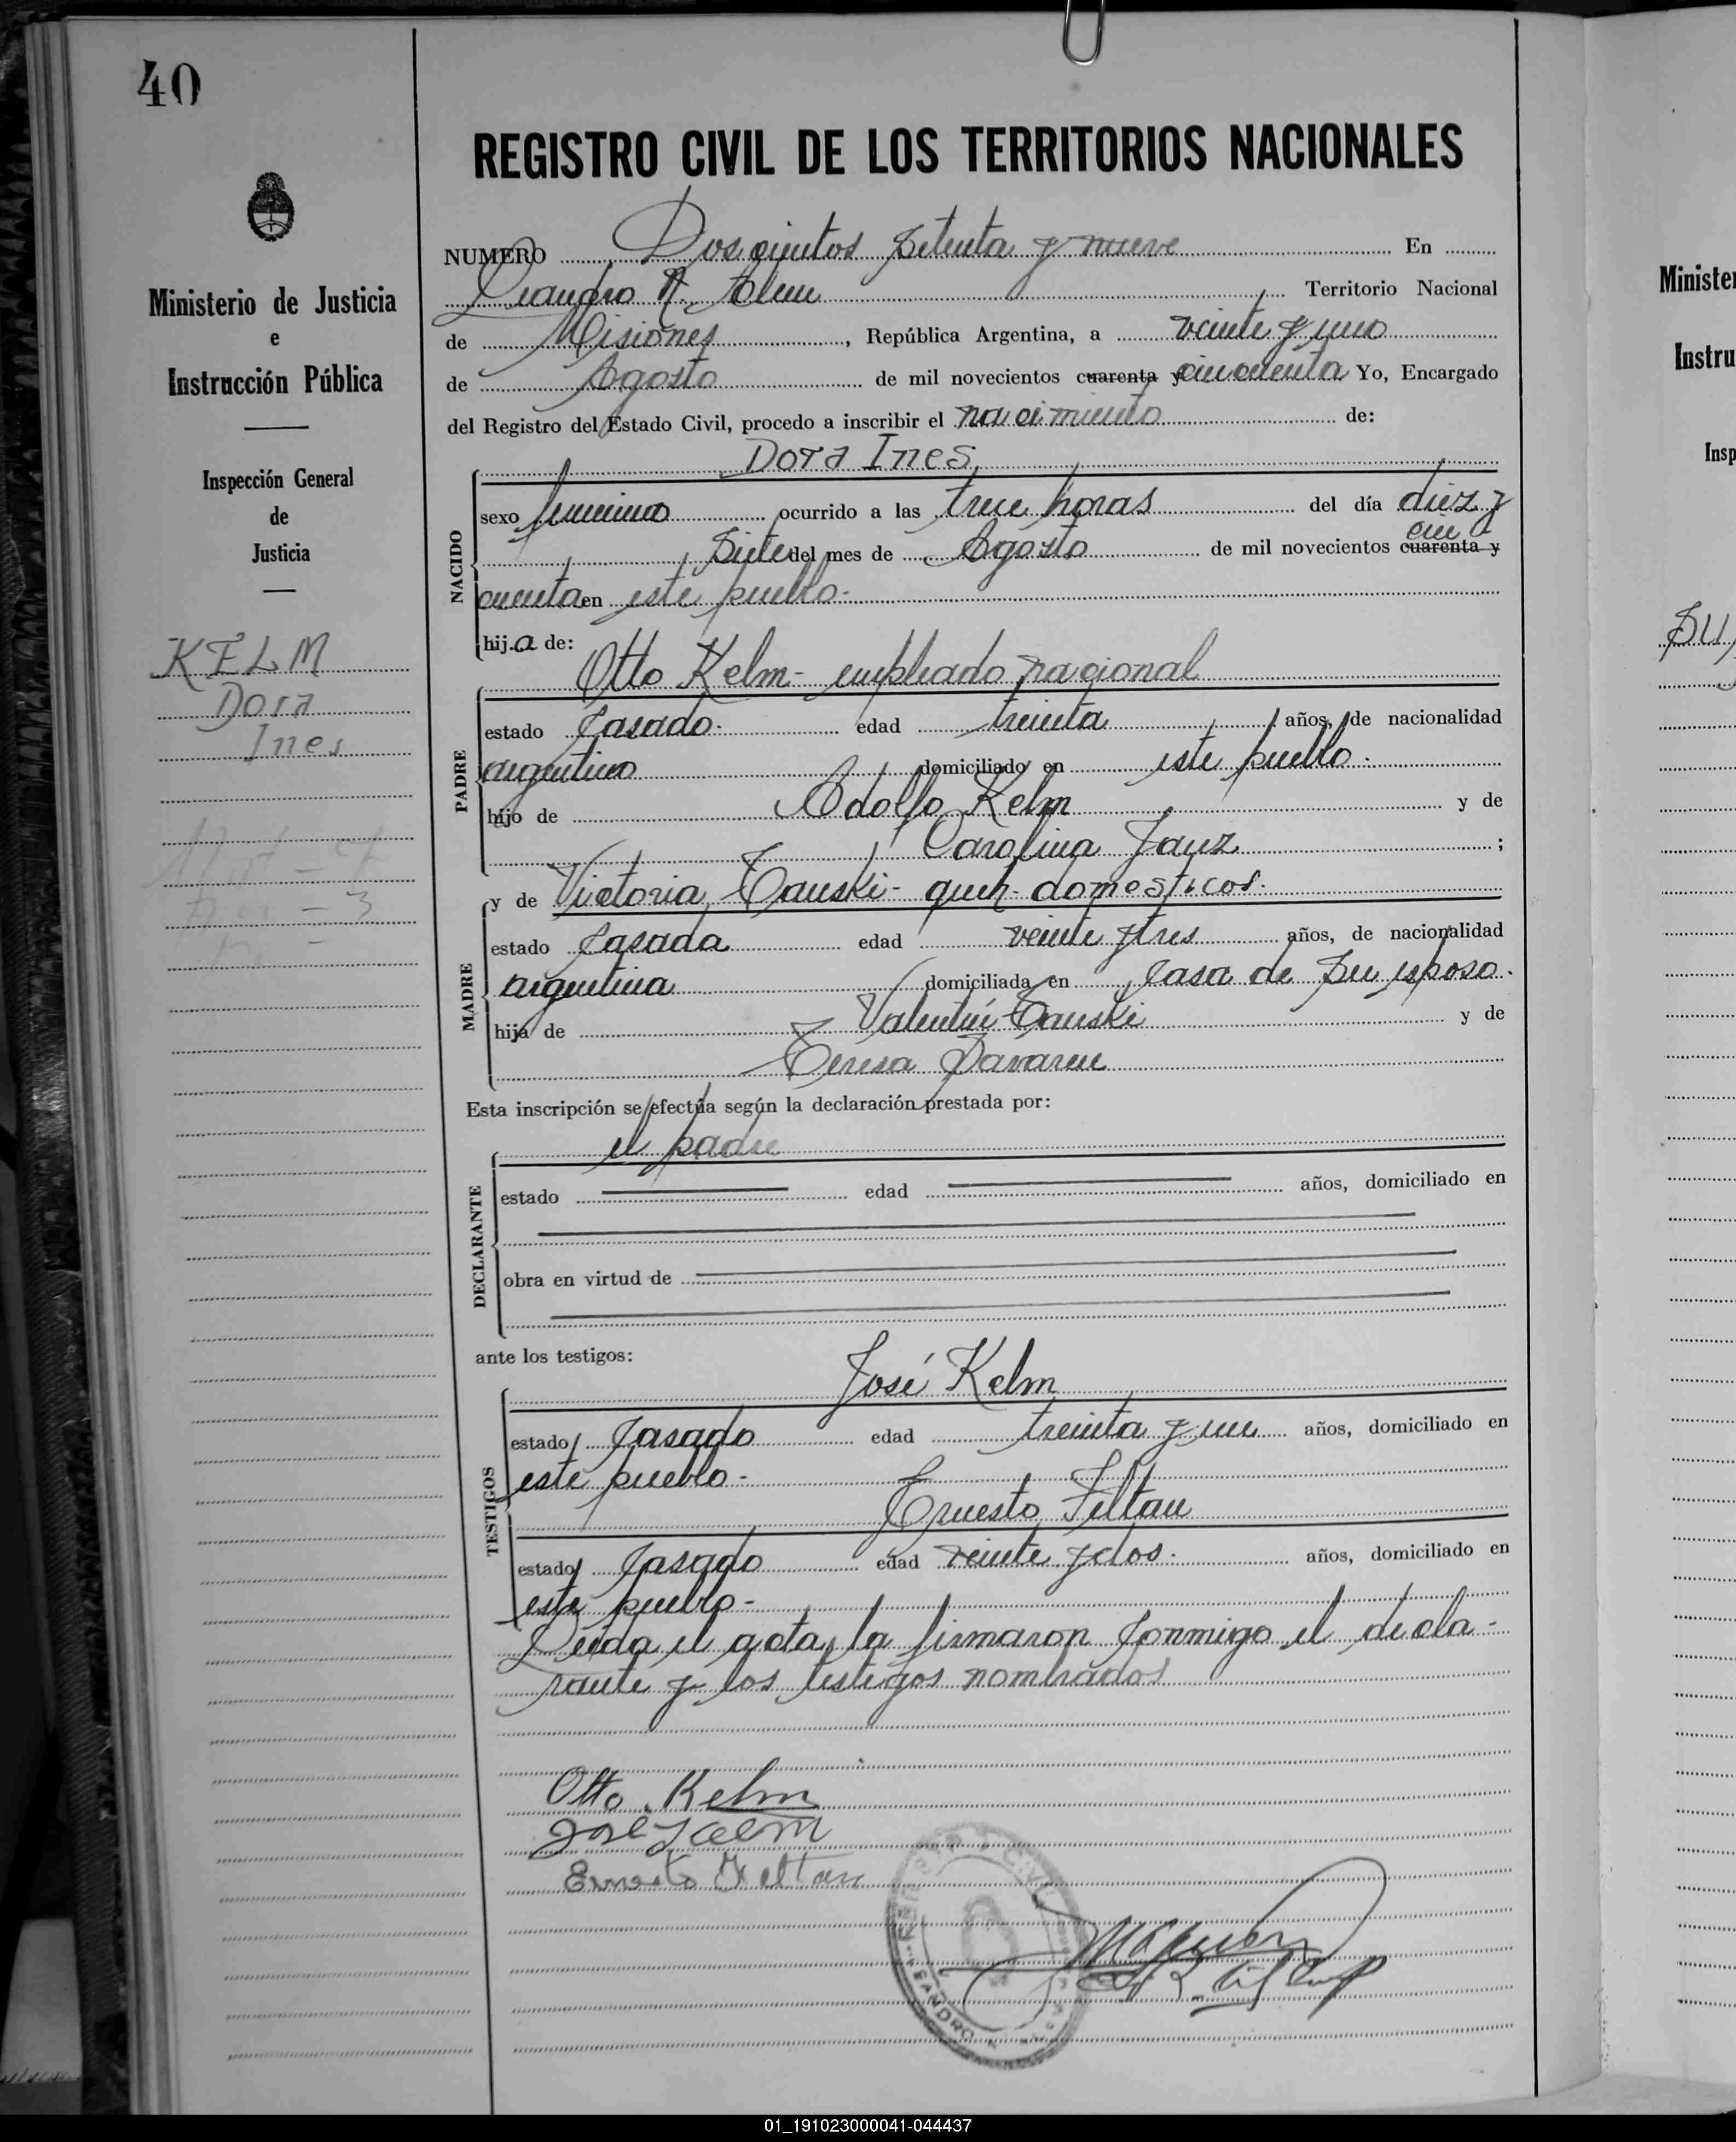 40
REGISTRO CIVIL DE LOS TERRITORIOS NACIONALES
Ministerio de Justicia
e
Instrucción Pública
Inspección General
de
Justicia
KELM
Dora
Ines
NUMERO Doscientos setenta y nueve En
Leandro N. Alem Territorio Nacional
de Misiones, República Argentina, a veinte y uno
de Agosto de mil novecientos cuarenta y cincuenta Yo, Encargado
del Registro del Estado Civil, procedo a inscribir el nacimiento de:
Dora Ines
NACIDO
sexo femenino ocurrido a las trece horas del día diez y
siete del mes de Agosto de mil novecientos cuarenta y cin
cuenta en este pueblo-
hija de:
Otto Kelm- empleado nacional
PADRE
estado Casado. edad treinta años, de nacionalidad
argentino domiciliado en este pueblo.
hijo de Adolfo Kelm y de
Carolina Janz ;
y de Victoria Tauski- queh- domesticos.
MADRE
estado Casada edad veinte y tres años, de nacionalidad
argentina domiciliada en casa de su esposo.
hija de Valentín Tauski y de
Teresa
Esta inscripción se efectúa según la declaración prestada por:
el padre
DECLARANTE
estado edad años, domiciliado en
obra en virtud de
ante los testigos:
José Kelm
TESTIGOS
estado Casado edad treinta y un años, domiciliado en
este pueblo-
Ernesto Feltan
estado Casado edad veinte y dos. años, domiciliado en
este pueblo-
Leída el acta, la firmaron conmigo el decla-
rante y los testigos nombrados
Otto. Kelm
José Kelm
Ernesto Feltan
LEANDRO N.
Ministe
Instru
Insp
01_191023000041-044437